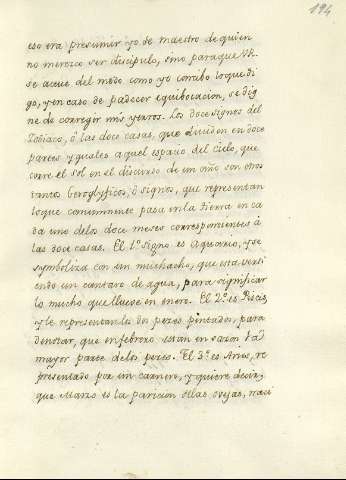 194
eso era presumir yo de maestro de quien
no merezco ser discipulo, sino paraque VR.
se aclue del modo como yo concibo loque di
go, y en caso de padecer equibocacion, se dig
ne de corregir mis yerros. Los doce signos del
Zodiaco, ó las doce casas, que dividen en doce
partes yguales aquel espacio del cielo, que
corre el sol en el discurso de un año son otros
tantos Geroglyficos, ó signos, que representan
loque comunmente pasa en la tierra en ca
da uno delos doce meses correspondientes á
las doce casas. El 1.º signo es Aquario, y se
symboliza con un muchacho, que esta verti
endo un cantaro de agua, para significar
lo mucho que llueve en enero. El 2.º es Piscis
y le representan los dos pezes pintados, para
denotar, que en febrero estan en sazon la
mayor parte delos pezes. El 3.º es Aries, re
presentado por un carnero, y quiere decir,
que Marzo es la paricion de las ovejas, naci